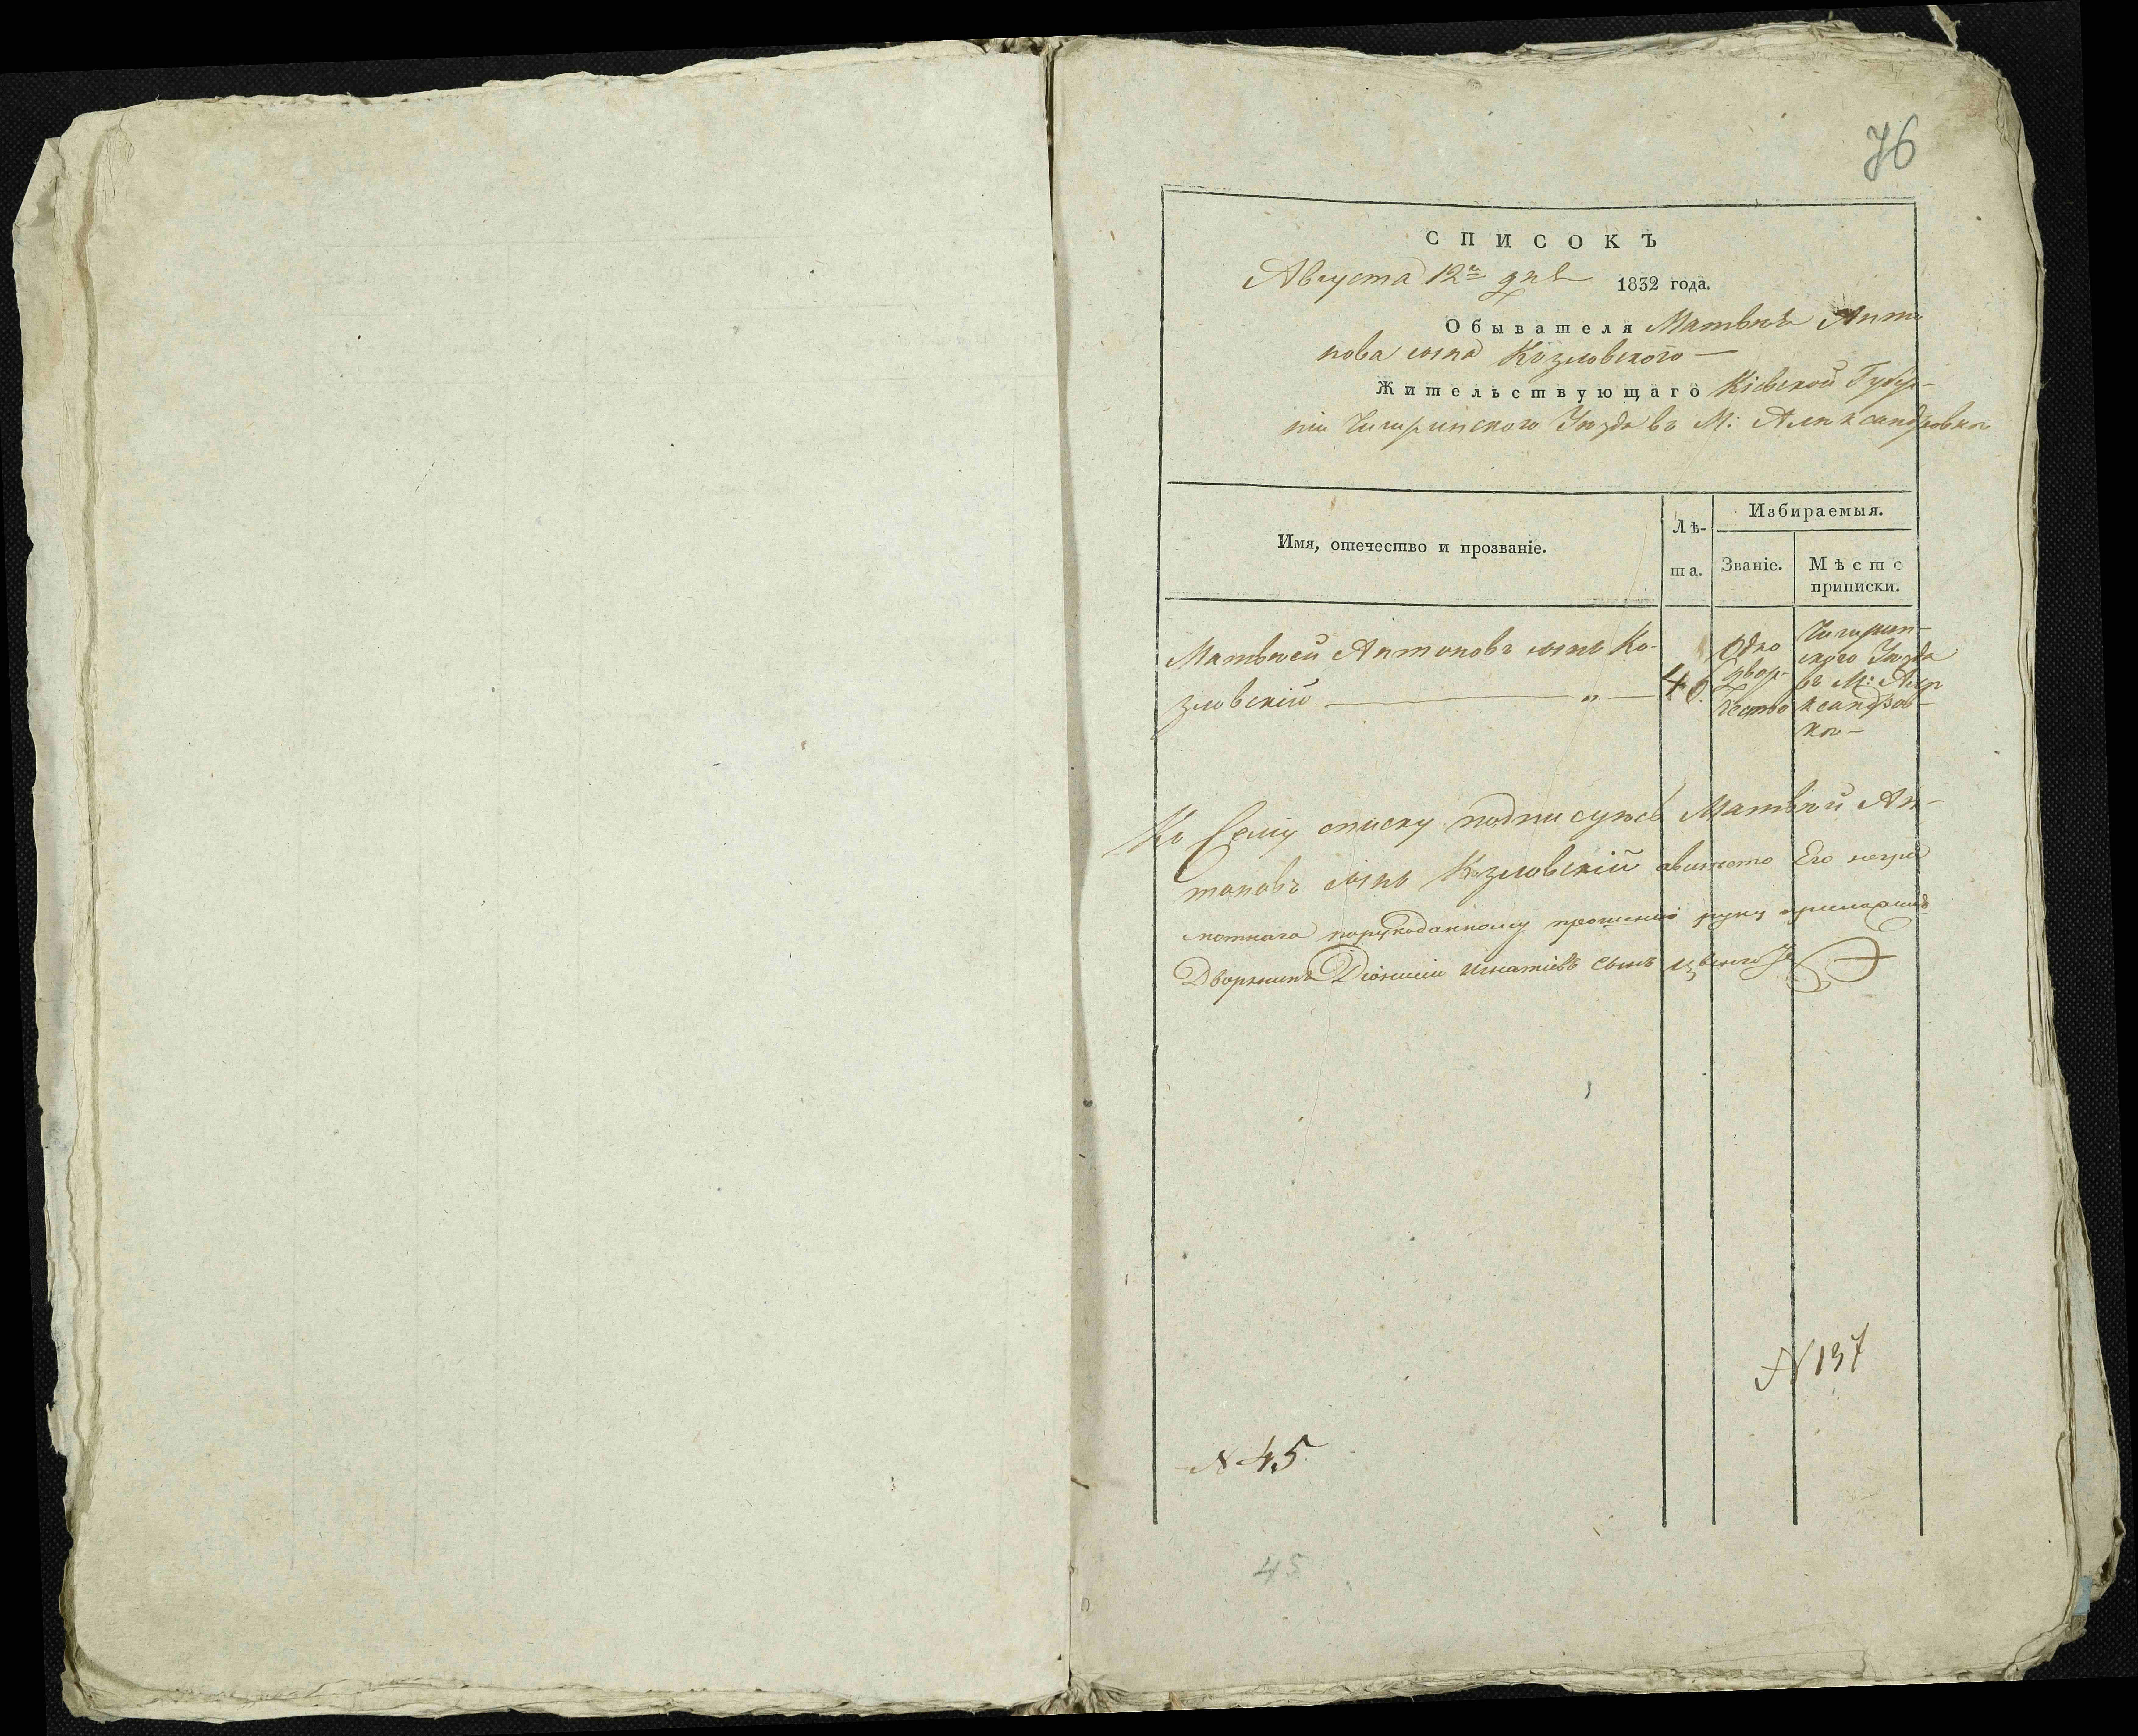 76
СПИСОКЪ
Августа 12го дня 1832 года.
Обывателя Матвѣя Анто
нова сына Козловского —
Жительствующаго Кіевской Губер-
ніи Чигиринского Уѣзда въ М: Алѣксандровкѣ
Имя, отечество и прозваніе.
Лѣ-
та.
Избираемыя.
Званіе.
Мѣсто
приписки.
Матвѣей Антоновъ сынъ Ко-
зловскій — „ —
46.
Одно
двор-
чество
Чигирин-
ского Уѣзда
въ М: Алѣ
ксандров-
кѣ —
Къ Сему списку подписуюсь Матвѣй Ан-
тоновъ сынъ Козловскій авместо Его негра
мотнаго порукоданному прошению руку приложилъ
Дворянинъ Діонисій игнатіевъ сынъ
N 137
N 45
45